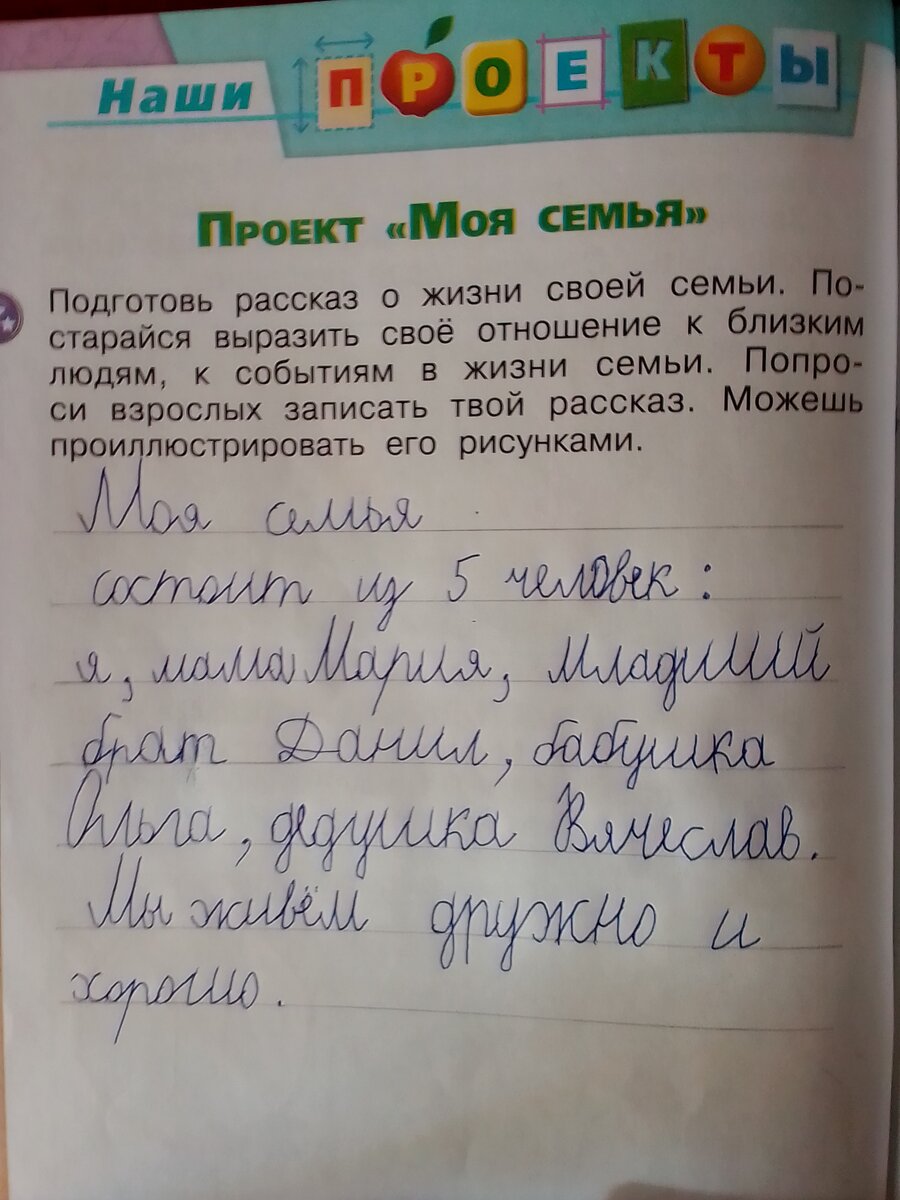 Наши ПРОЕКТЫ
Проект «Моя семья»
Подготовь рассказ о жизни своей семьи. По-
старайся выразить своё отношение к близким
людям, к событиям в жизни семьи. Попро-
си взрослых записать твой рассказ. Можешь
проиллюстрировать его рисунками.
Моя семья
состоит из 5 человек:
я, мама Мария, младший
брат Данил, бабушка
Ольга, дедушка Вячеслав.
Мы живём дружно и
хорошо.